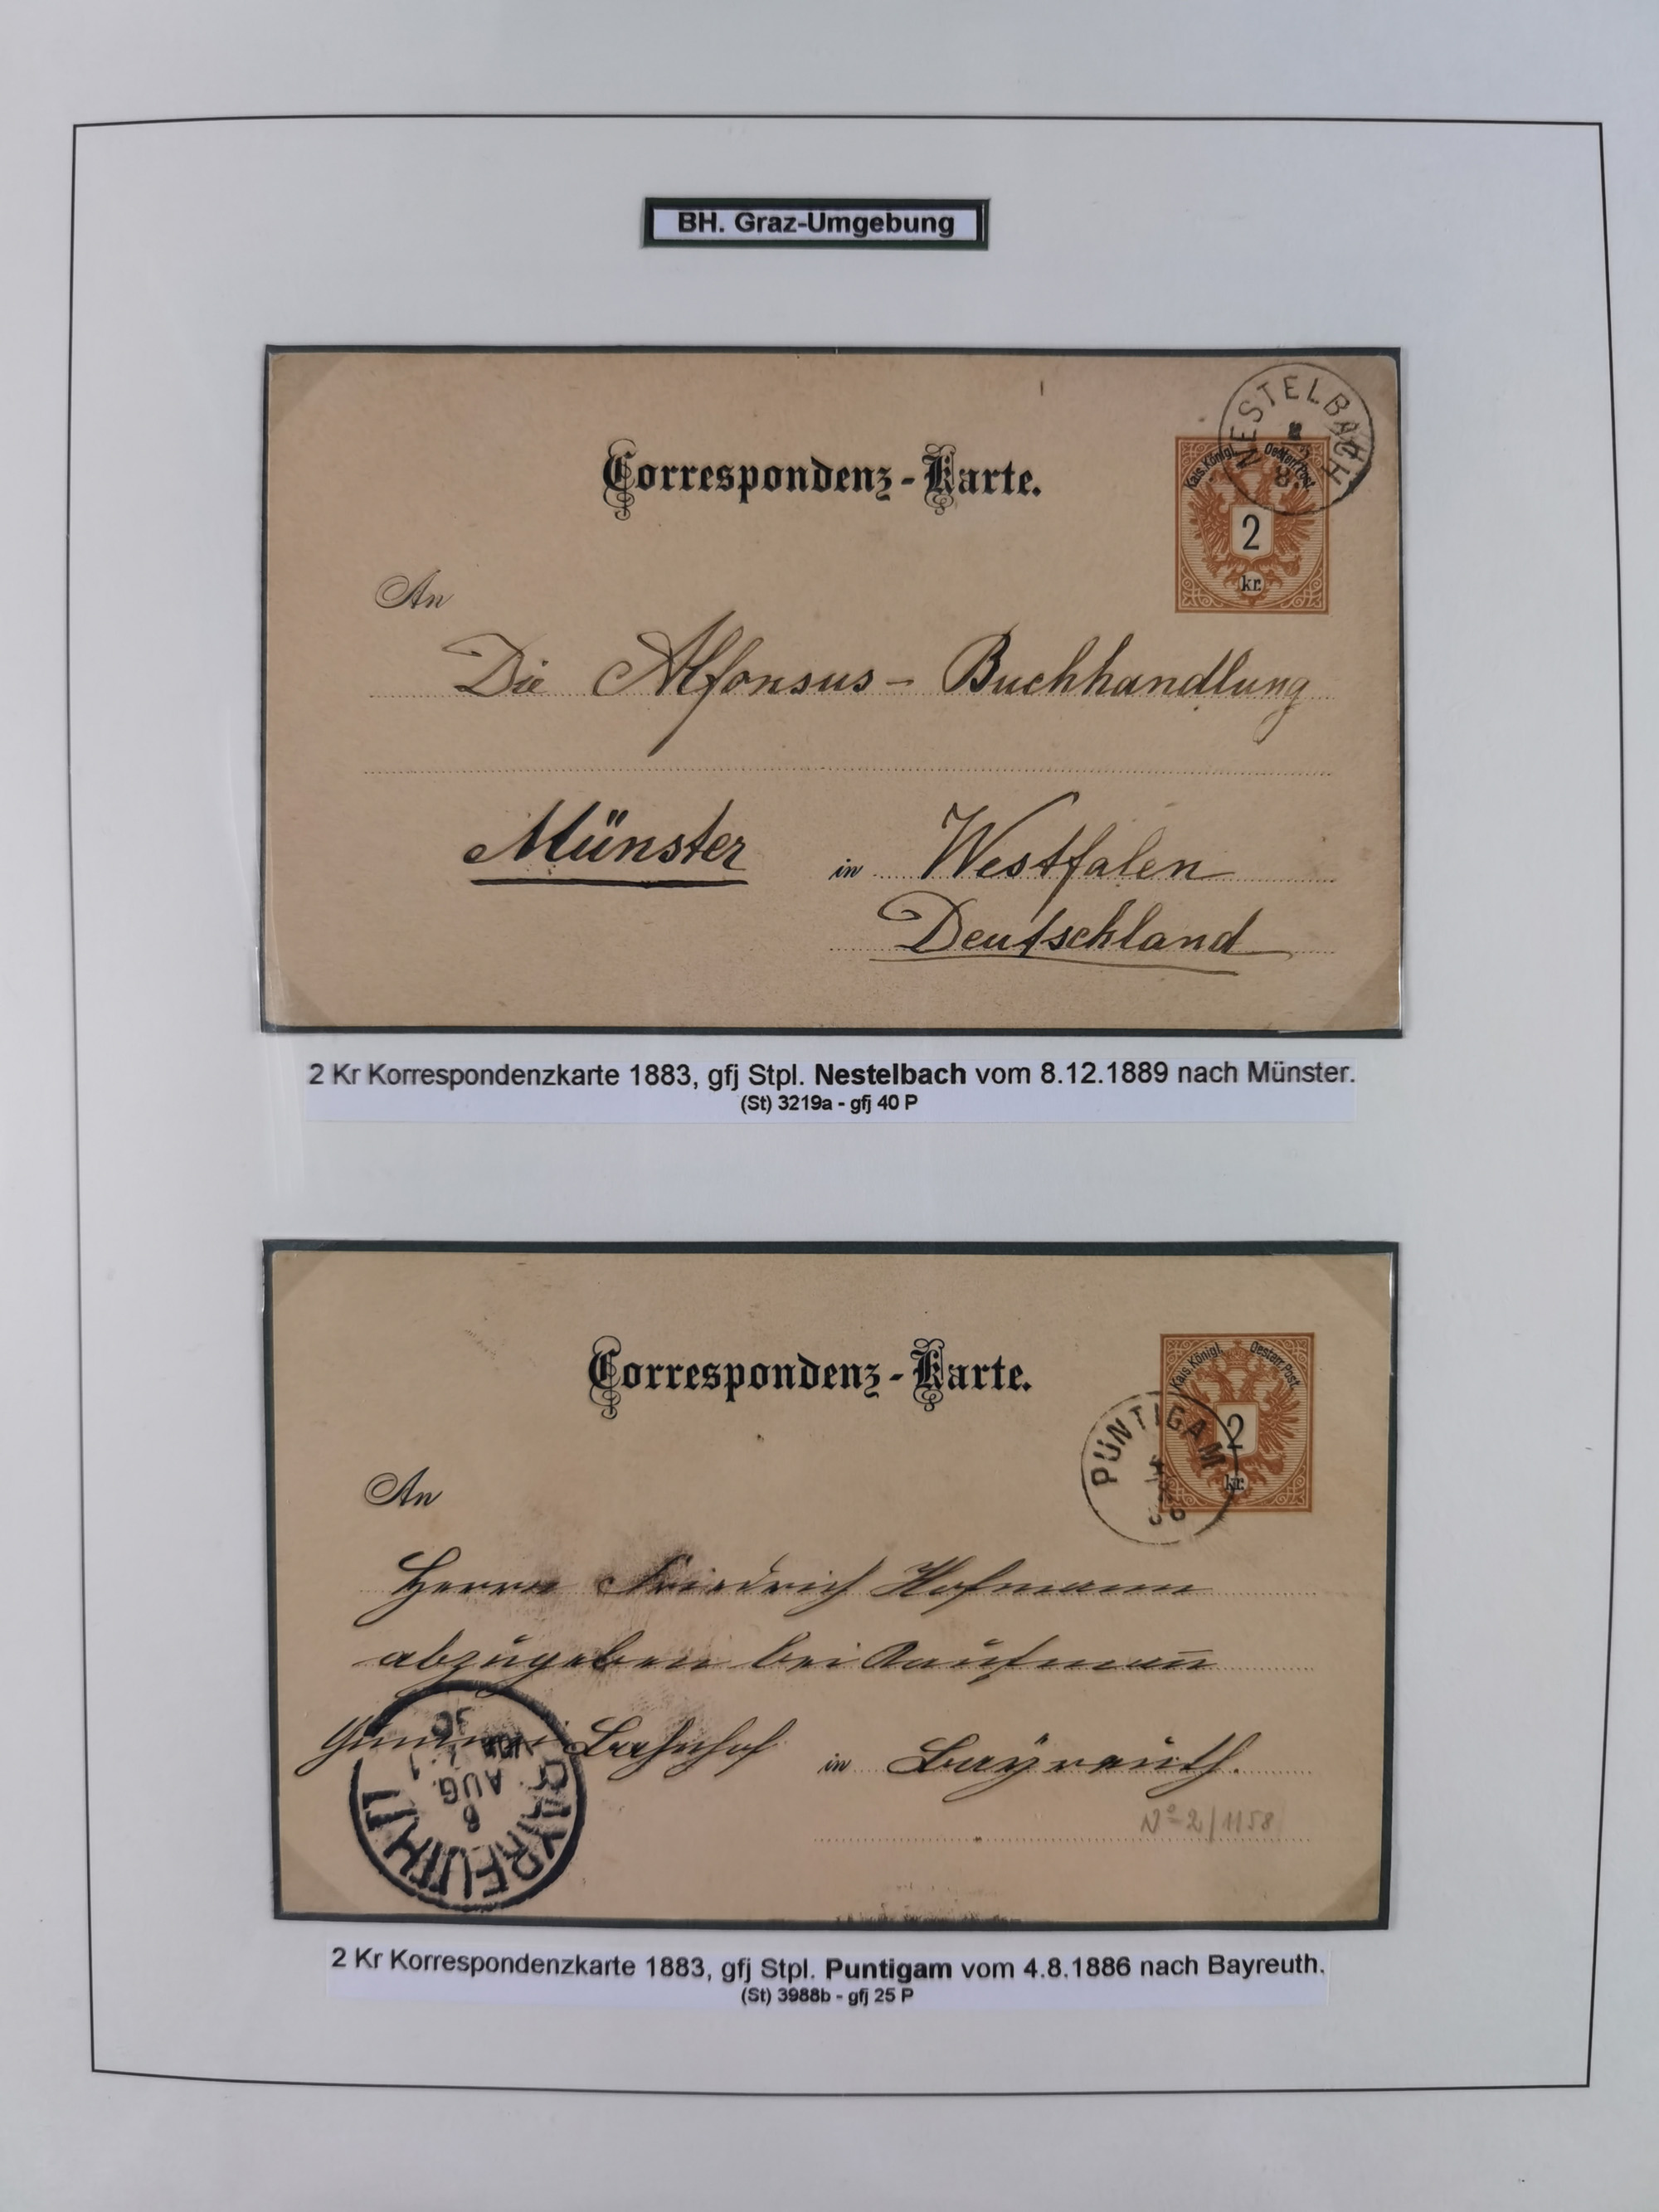 BH. Graz-Umgebung
NESTELBACH
8
Kais. Königl. Oesterr. Post.
2
kr.
Correspondenz-Karte.
An
Die Alfonsus- Buchhandlung
Münster in Westfalen
Deutschland
2 Kr Korrespondenzkarte 1883, gfj Stpl. Nestelbach vom 8.12.1889 nach Münster.
(St) 3219a - gfj 40 P
Correspondenz-Karte.
Kais. Königl. Oesterr. Post.
2
kr.
PUNTIGAM
An
Herrn Friedrich Hofmann
abzugeben bei Kaufmann
Bahnhof in Bayreuth.
No 2/1158
BAYREUTH II
6
AUG.
2 Kr Korrespondenzkarte 1883, gfj Stpl. Puntigam vom 4.8.1886 nach Bayreuth.
(St) 3988b - gfj 25 P